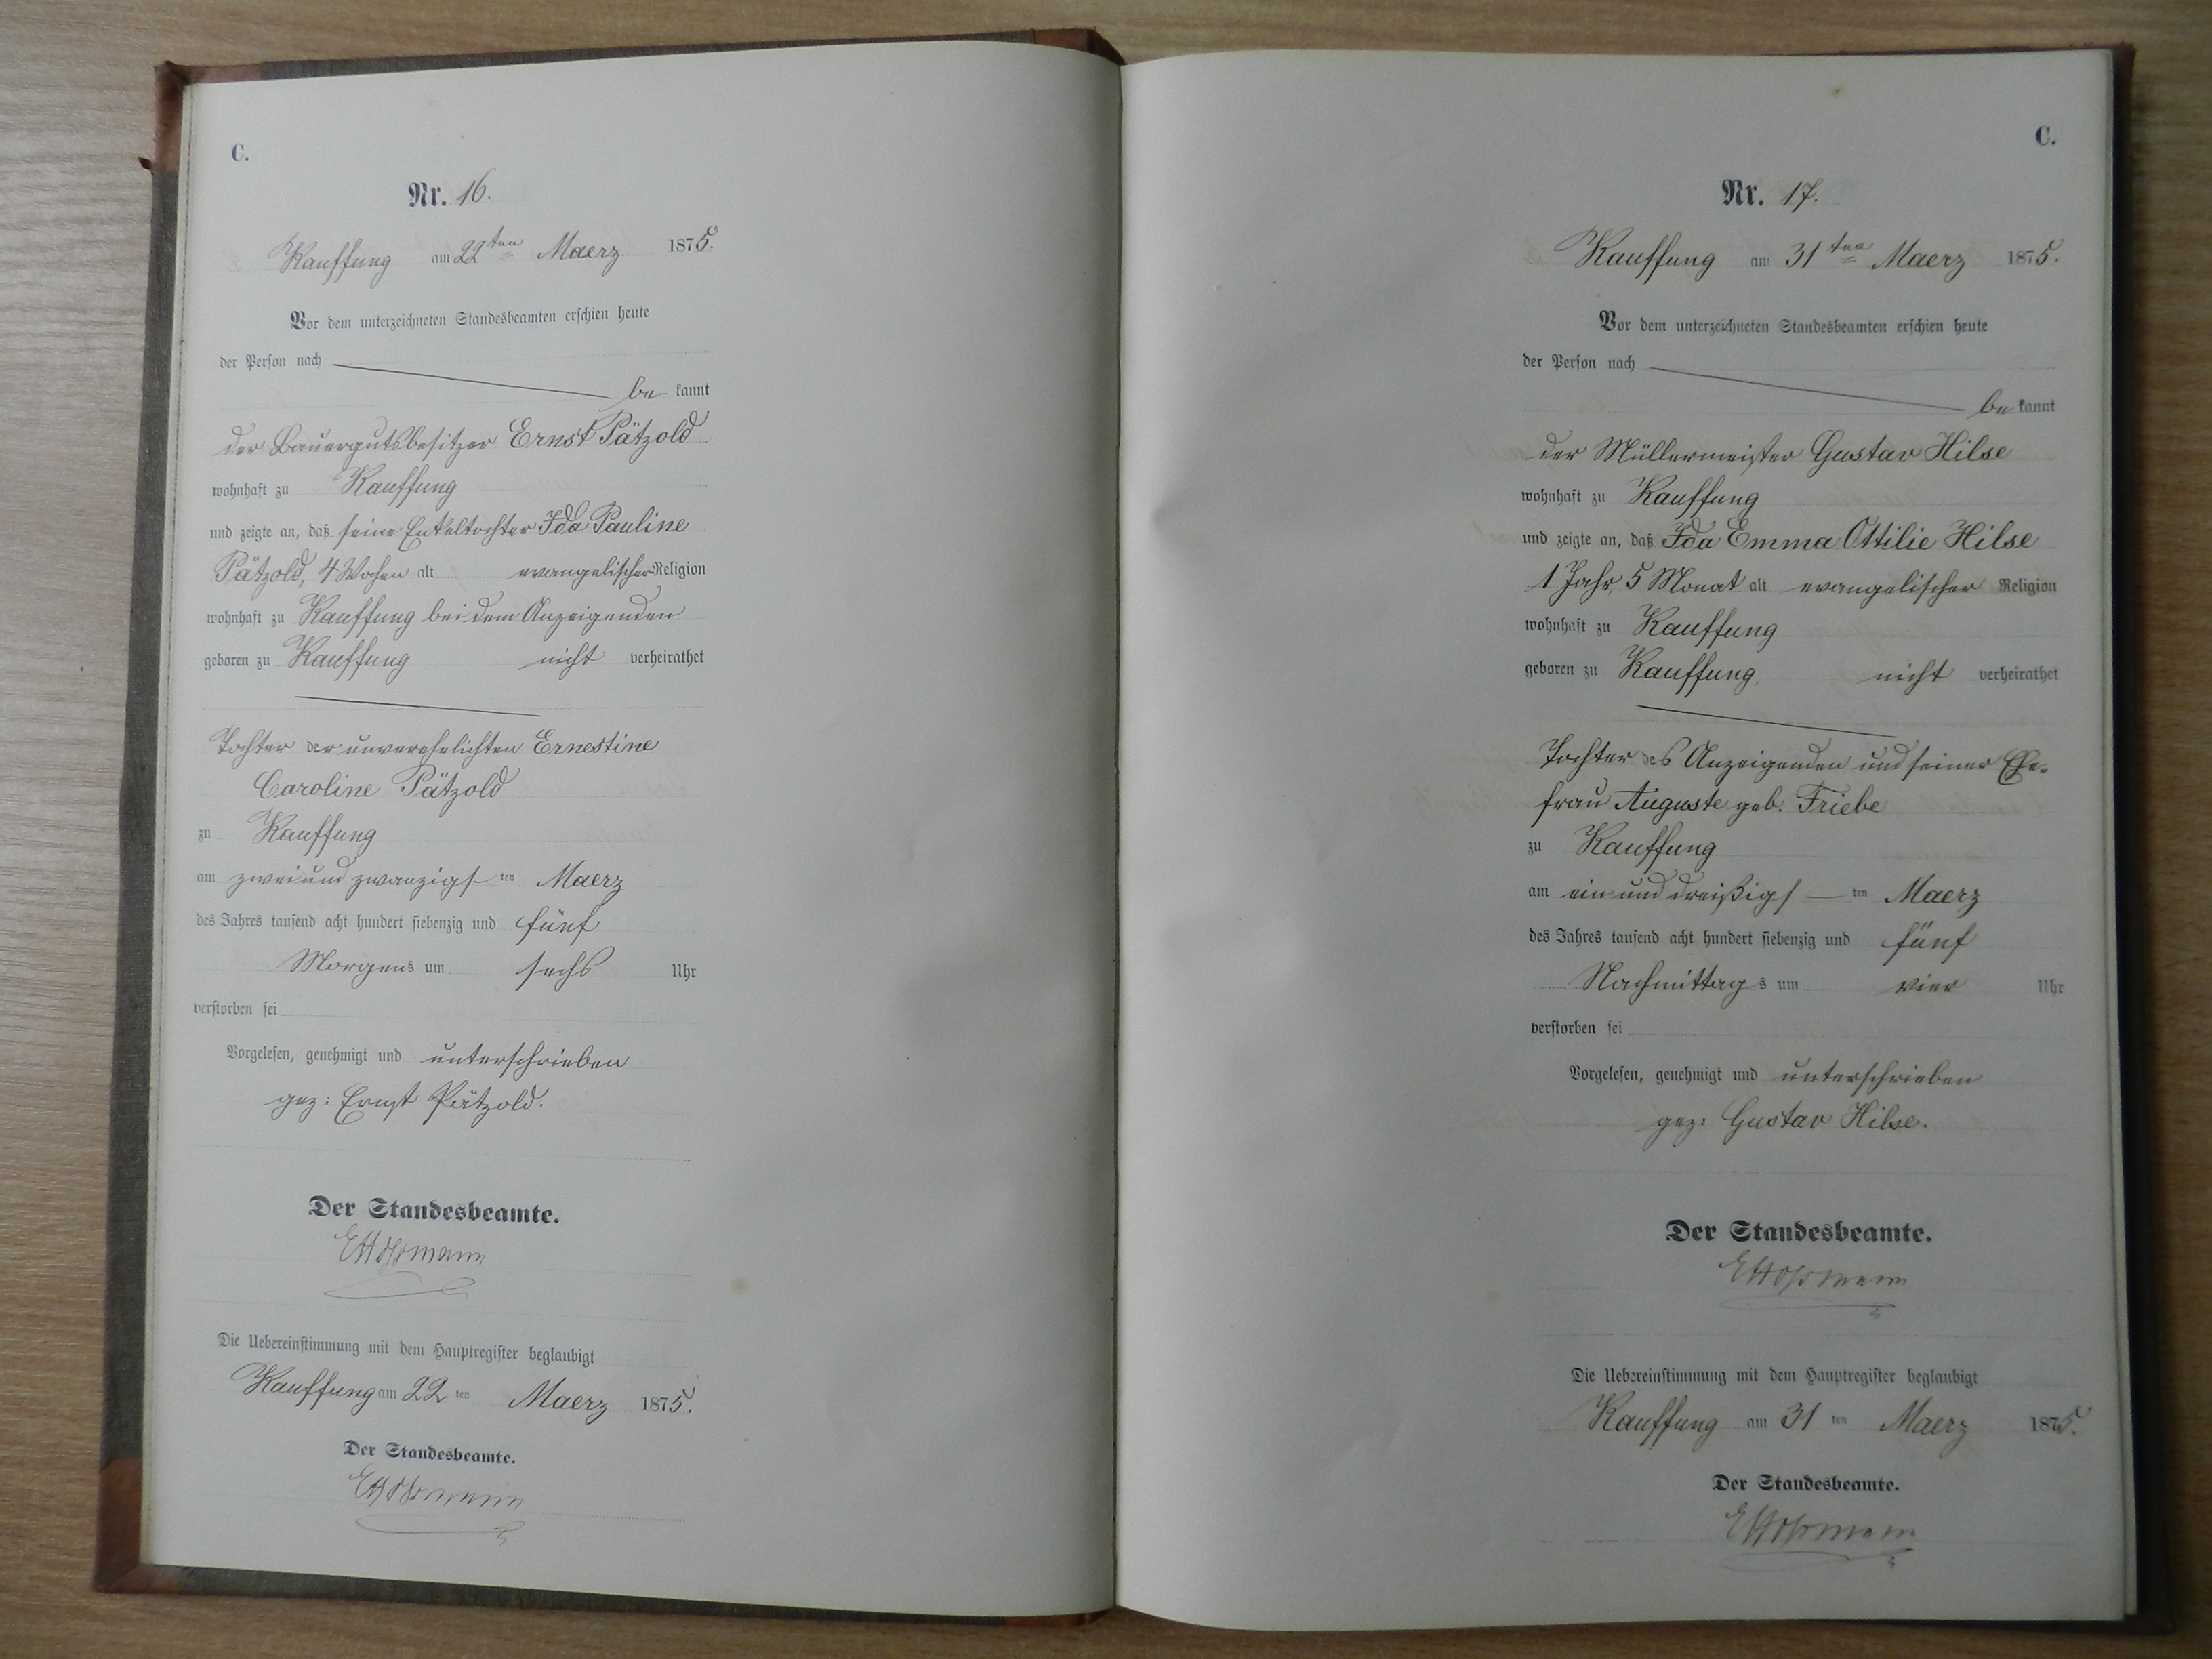 C.
Nr. 16.
Kauffung am 22ten Maerz 1875.
Vor dem unterzeichneten Standesbeamten erschien heute
der Person nach
be kannt
der Bauergutsbesitzer Ernst Pätzold
wohnhaft zu Kauffung
und zeigte an, daß seine Enkeltochter Ida Pauline
Pätzold, 4 Wochen alt evangelischer Religion
wohnhaft zu Kauffung bei dem Anzeigenden
geboren zu Kauffung nicht verheirathet
Tochter der unverehelichten Ernestine
Caroline Pätzold
zu Kauffung
am zwei und zwanzigsten Maerz
des Jahres tausend acht hundert siebenzig und fünf
Morgens um sechs Uhr
verstorben sei
Vorgelesen, genehmigt und unterschrieben
gez: Ernst Pätzold.
Der Standesbeamte.
Die Uebereinstimmung mit dem Hauptregister beglaubigt
Kauffung am 22 ten Maerz 1875.
Der Standesbeamte.
C.
Nr. 17.
Kauffung am 31ten Maerz 1875.
Vor dem unterzeichneten Standesbeamten erschien heute
der Person nach
be kannt
der Müllermeister Gustav Hilse
wohnhaft zu Kauffung
und zeigte an, daß Ida Emma Ottilie Hilse
1 Jahr, 5 Monat alt evangelischer Religion
wohnhaft zu Kauffung
geboren zu Kauffung nicht verheirathet
Tochter des Anzeigenden und seiner Ehe-
frau Auguste geb. Friebe
zu Kauffung
am ein und dreißigsten Maerz
des Jahres tausend acht hundert siebenzig und fünf
Nachmittags um vier Uhr
verstorben sei
Vorgelesen, genehmigt und unterschrieben
gez: Gustav Hilse.
Der Standesbeamte.
Die Uebereinstimmung mit dem Hauptregister beglaubigt
Kauffung am 31 ten Maerz 1875.
Der Standesbeamte.